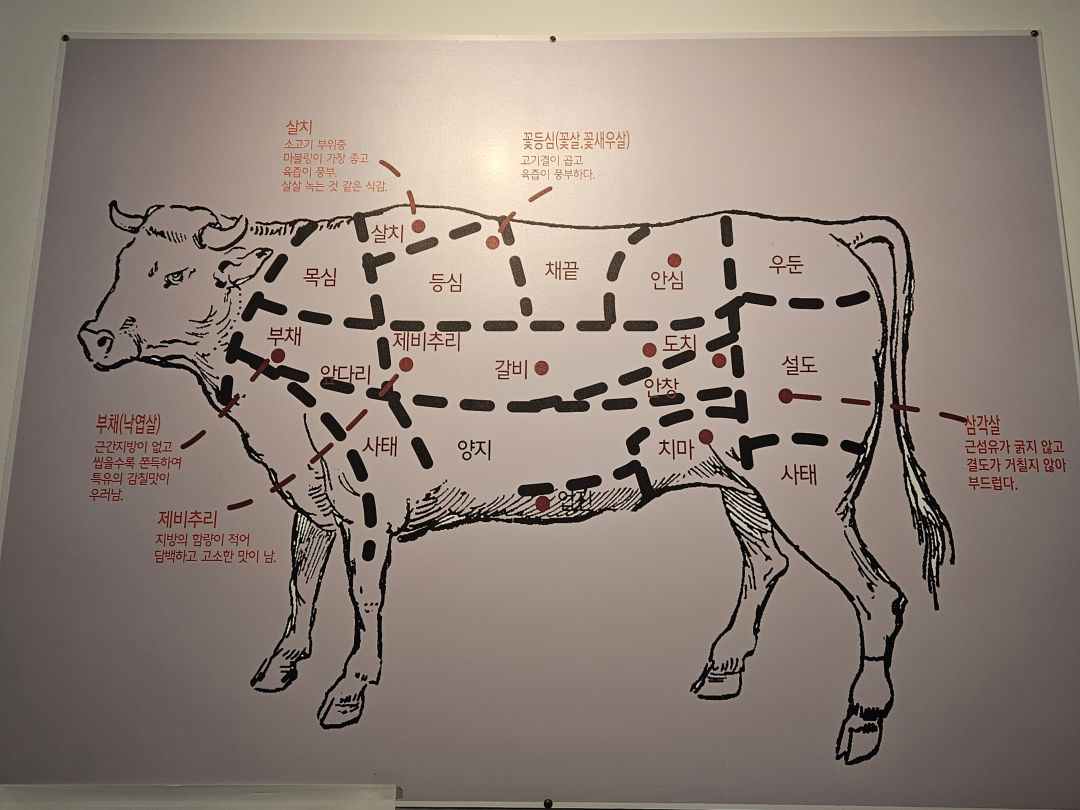 살치
소고기 부위중
마블링이 가장 좋고
육즙이 풍부,
살살 녹는 것 같은 식감.
꽃등심(꽃살.꽃새우살)
고기결이 곱고
육즙이 풍부하다.
살치
목심
등심
채끝
안심
우둔
부채
제비추리
도치
앞다리
갈비
설도
안창
사태
양지
치마
사태
업진
부채(낙엽살)
근간지방이 없고
씹을수록 쫀득하여
특유의 감칠맛이
우러남.
제비추리
지방의 함량이 적어
담백하고 고소한 맛이 남.
삼각살
근섬유가 굵지 않고
결도가 거칠지 않아
부드럽다.